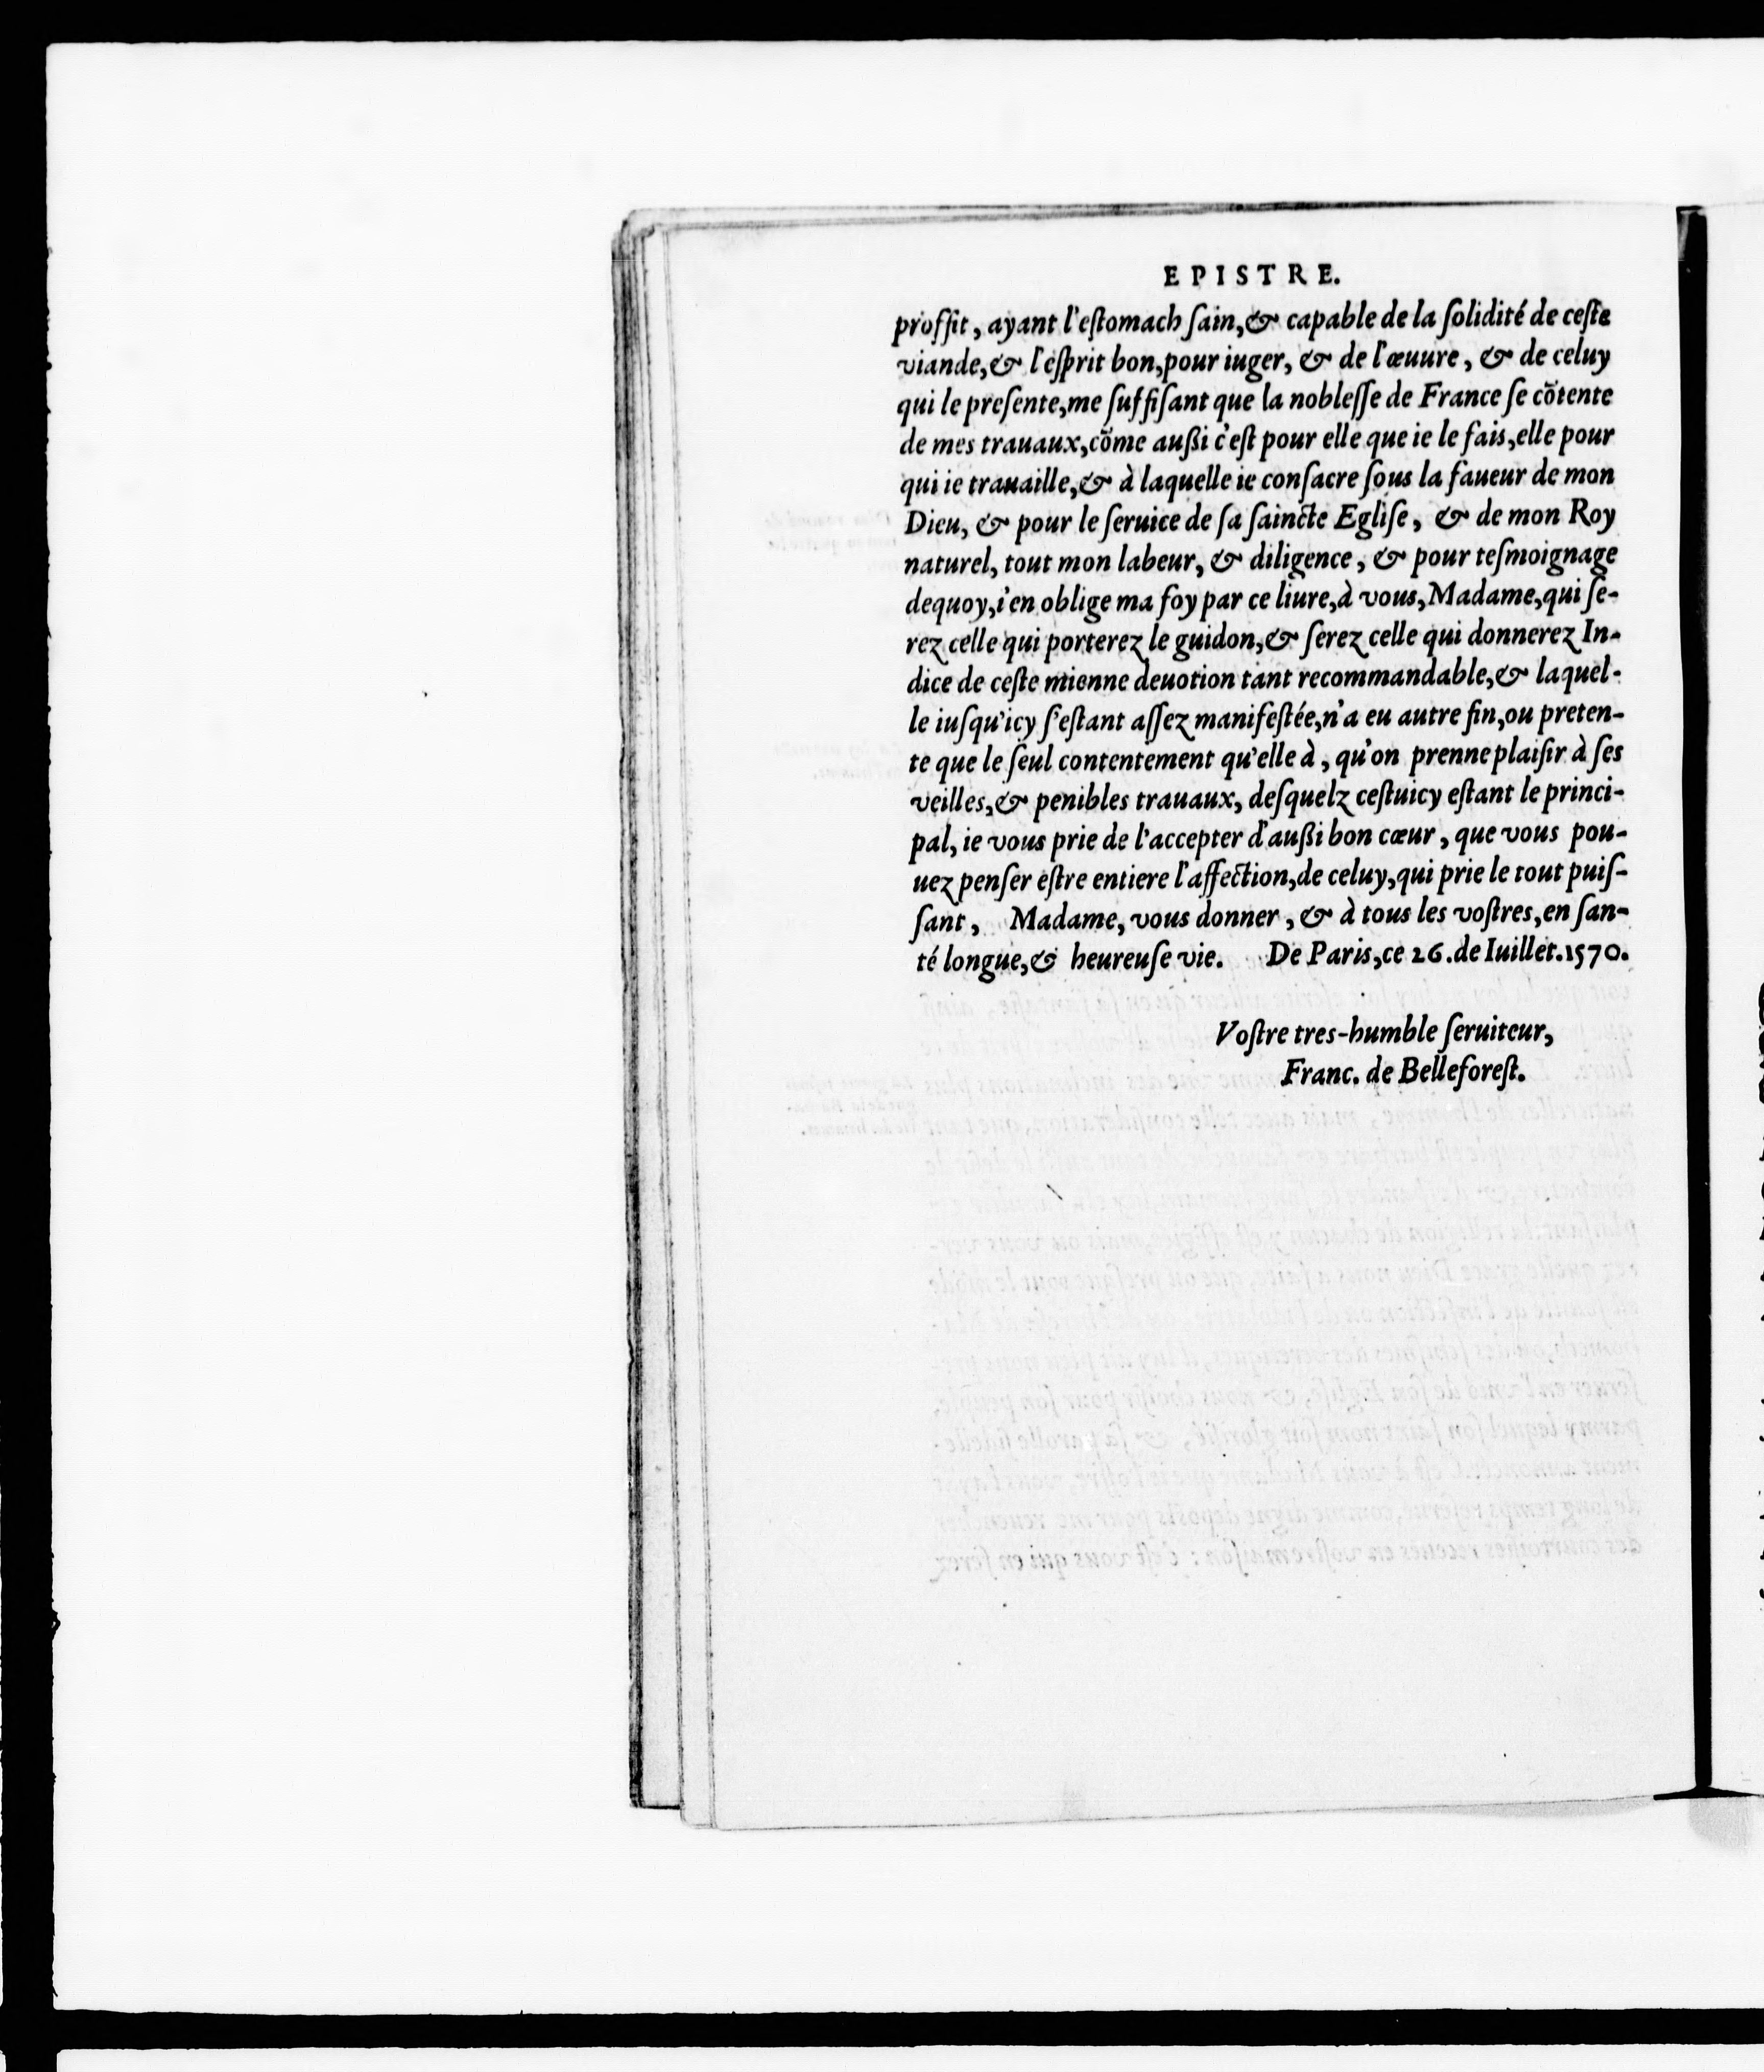 EPISTRE.
proffit, ayant l'eſtomach ſain,& capable de la ſolidité de ceſte
viande,& l'eſprit bon,pour iuger, & de l'œuure, & de celuy
qui le preſente,me ſuffiſant que la nobleſſe de France ſe cõtente
de mes trauaux,cõme außi c'eſt pour elle que ie le fais,elle pour
qui ie trauaille,& à laquelle ie conſacre ſous la faueur de mon
Dieu, & pour le ſeruice de ſa ſaincte Egliſe, & de mon Roy
naturel, tout mon labeur, & diligence, & pour teſmoignage
dequoy,i'en oblige ma foy par ce liure,à vous,Madame,qui ſe-
rez celle qui porterez le guidon,& ſerez celle qui donnerez In-
dice de ceſte mienne deuotion tant recommandable,& laquel-
le iuſqu'icy ſ'eſtant aſſez manifeſtée,n'a eu autre fin,ou preten-
te que le ſeul contentement qu'elle à, qu'on prenne plaiſir à ſes
veilles,& penibles trauaux, deſquelz ceſtuicy eſtant le princi-
pal, ie vous prie de l'accepter d'außi bon cœur, que vous pou-
uez penſer eſtre entiere l'affection,de celuy,qui prie le tout puiſ-
ſant, Madame, vous donner, & à tous les voſtres,en ſan-
té longue,& heureuſe vie. De Paris,ce 26.de Iuillet.1570.
Voſtre tres-humble ſeruiteur,
Franc. de Belleforeſt.